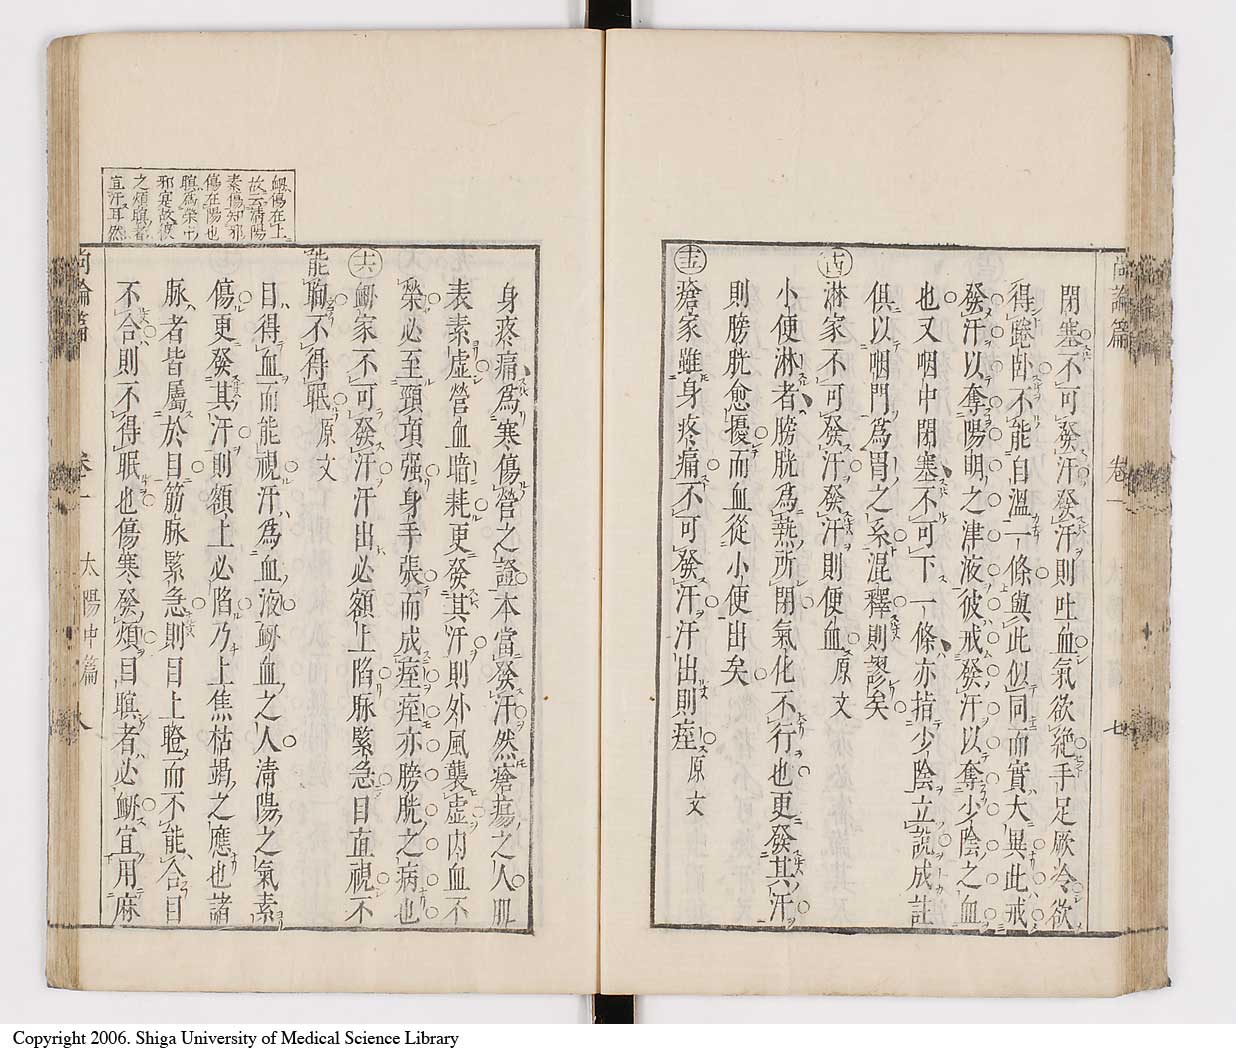 尚論篇　卷一　七
閉塞不可發汗發汗則吐血氣欲絶手足厥冷欲
得踡卧不能自溫一條與此似同而實大異此戒
發汗以奪陽明之津液彼戒發汗以奪少陰之血
也又咽中閉塞不可下一條亦指少陰立說成註
俱以咽門爲胃之系混釋則謬矣
淋家不可發汗發汗則便血 原文
小便淋者膀胱爲熱所閉氣化不行也更發其汗
則膀胱愈擾而血從小便出矣
瘡家雖身疼痛不可發汗汗出則痙 原文
身疼痛爲寒傷營之證本當發汗然瘡瘍之人肌
表素虛營血暗耗更發其汗則外風襲虛內血不
榮必至頸項强身手張而成痙痙亦膀胱之病也
衂家不可發汗汗出必額上陷脉緊急目直視不
能眴不得眠 原文
目得血而能視汗爲血液衂血之人清陽之氣素
傷更發其汗則額上必陷乃上焦枯竭之應也諸
脉者皆屬於目筋脉緊急則目上瞪而不能合目
不合則不得眠也傷寒發煩目瞑者必衂宜用麻
尚論篇　卷一　太陽中篇　八
衂傷在上
故云清陽
素傷知邪
傷在陽也
瞑爲榮中
邪寔故彼
之煩瞑者
宜汗耳然
Copyright 2006. Shiga University of Medical Science Library